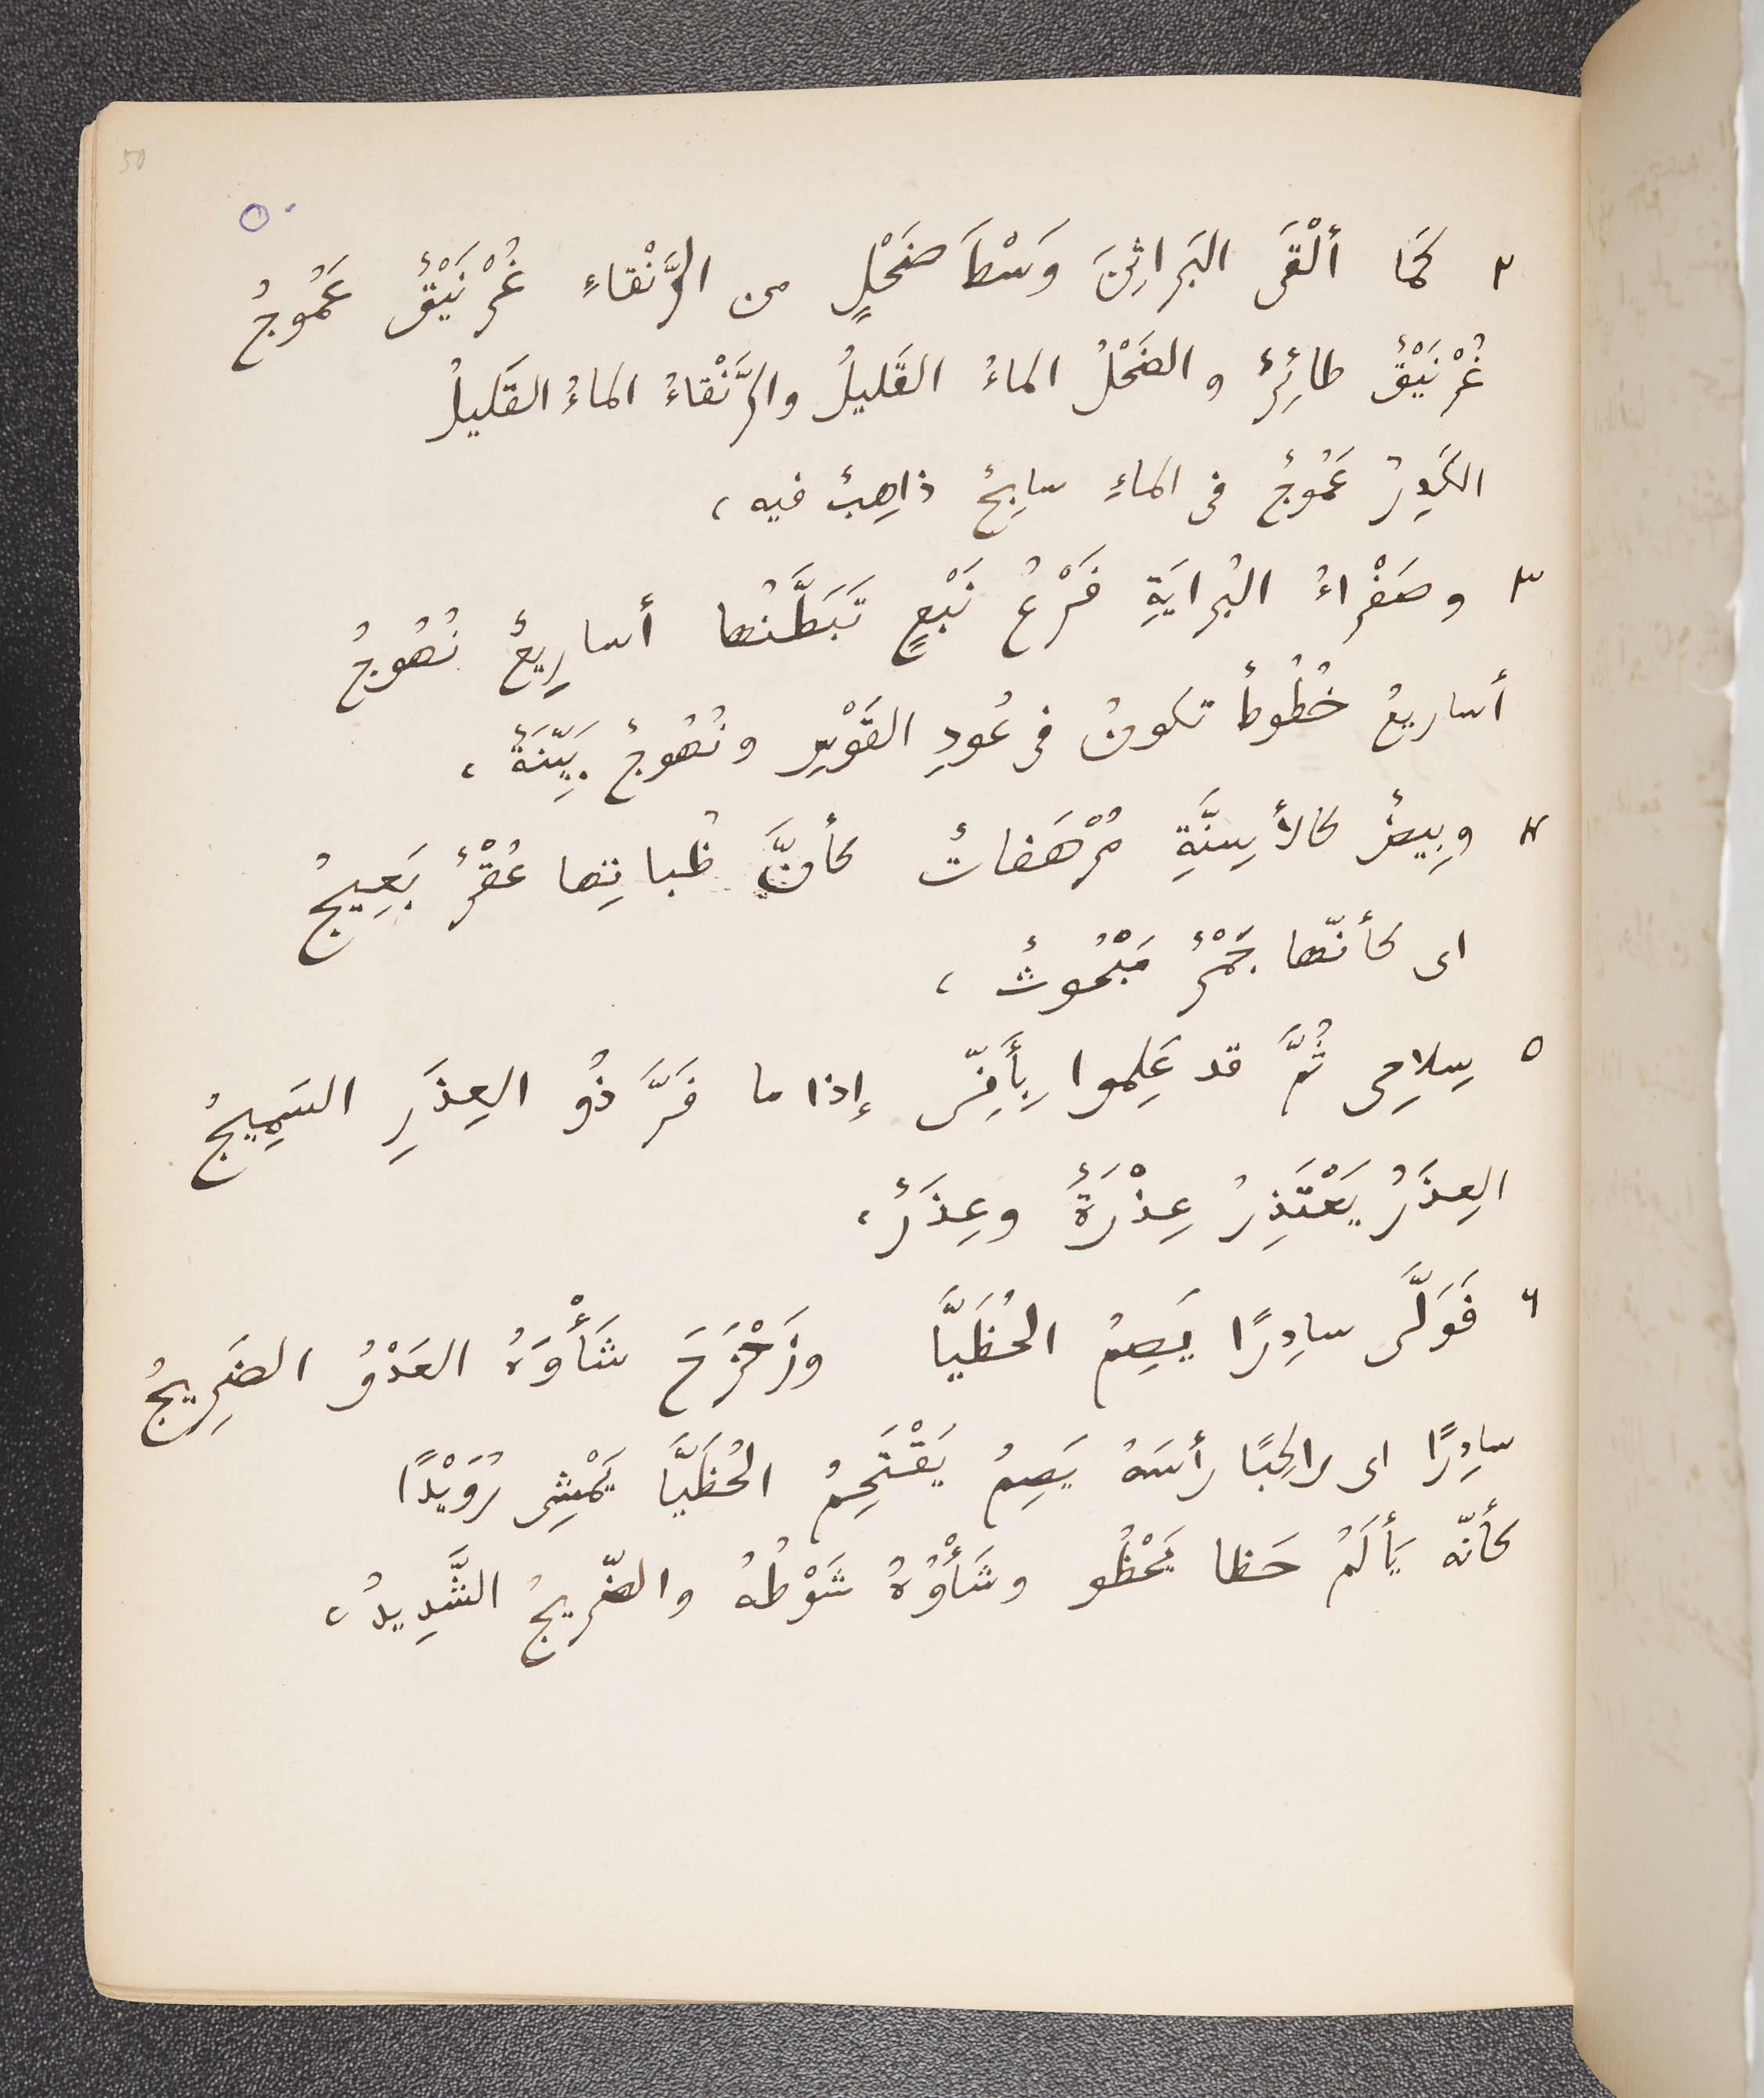 50
٥٠
٢ كَمَا ألْقَى البَراثِنَ وَسْطَ ضَحْلٍ من الرَّنْقاءِ غُرْنَيْقٌ عَمُوجُ
غُرْنَيْقٌ طائِرٌ والضَحْلُ الماءُ القَليلُ والرَّنْقاءُ الماءُ القَليلُ
الكَدِرُ عَمُوجٌ فى الماءِ سابِحٌ ذاهِبٌ فيه ،
٣ وصَفْراءُ البُرايَةِ فَرْعُ نَبْعٍ تَبَطَّنُها أساريعٌ نُهُوجُ
أساريعُ خُطُوطٌ تكونُ فى عُودِ القَوْسِ ونُهُوجٌ بَيِّنَةٌ ،
٤ وبِيضٌ كالأسِنَّةِ مُرْهَفاتٌ كأنَّ ظُباتِها عُقْرٌ بَعِيجُ
اى كأنّها جَمْرٌ مَبْحُوثٌ ،
٥ سِلاحِى ثُمَّ قد عَلِموا بِأَنِّى إذا ما فَرَّ ذُو العِذَرِ السَمِيجُ
العِذَرُ يَعْتَذِرُ عِذْرَةً وعِذَرٌ ،
٦ فَوَلَّى سادِرًا يَصِمُ الحُظَيَّا وزَحْزَحَ شَأْوَهُ العَدْوُ الضَرِيجُ
سادِرًا اى راكِبًا رأسَهُ يَصِمُ يَقْتَحِمُ الحُظَيَّا يَمْشِى رُوَيْدًا
كأنّه يَأْلَمُ حَظا يَحْظُو وشَأْوُهُ شَوْطُهُ والضَّريجُ الشَّدِيدُ ،